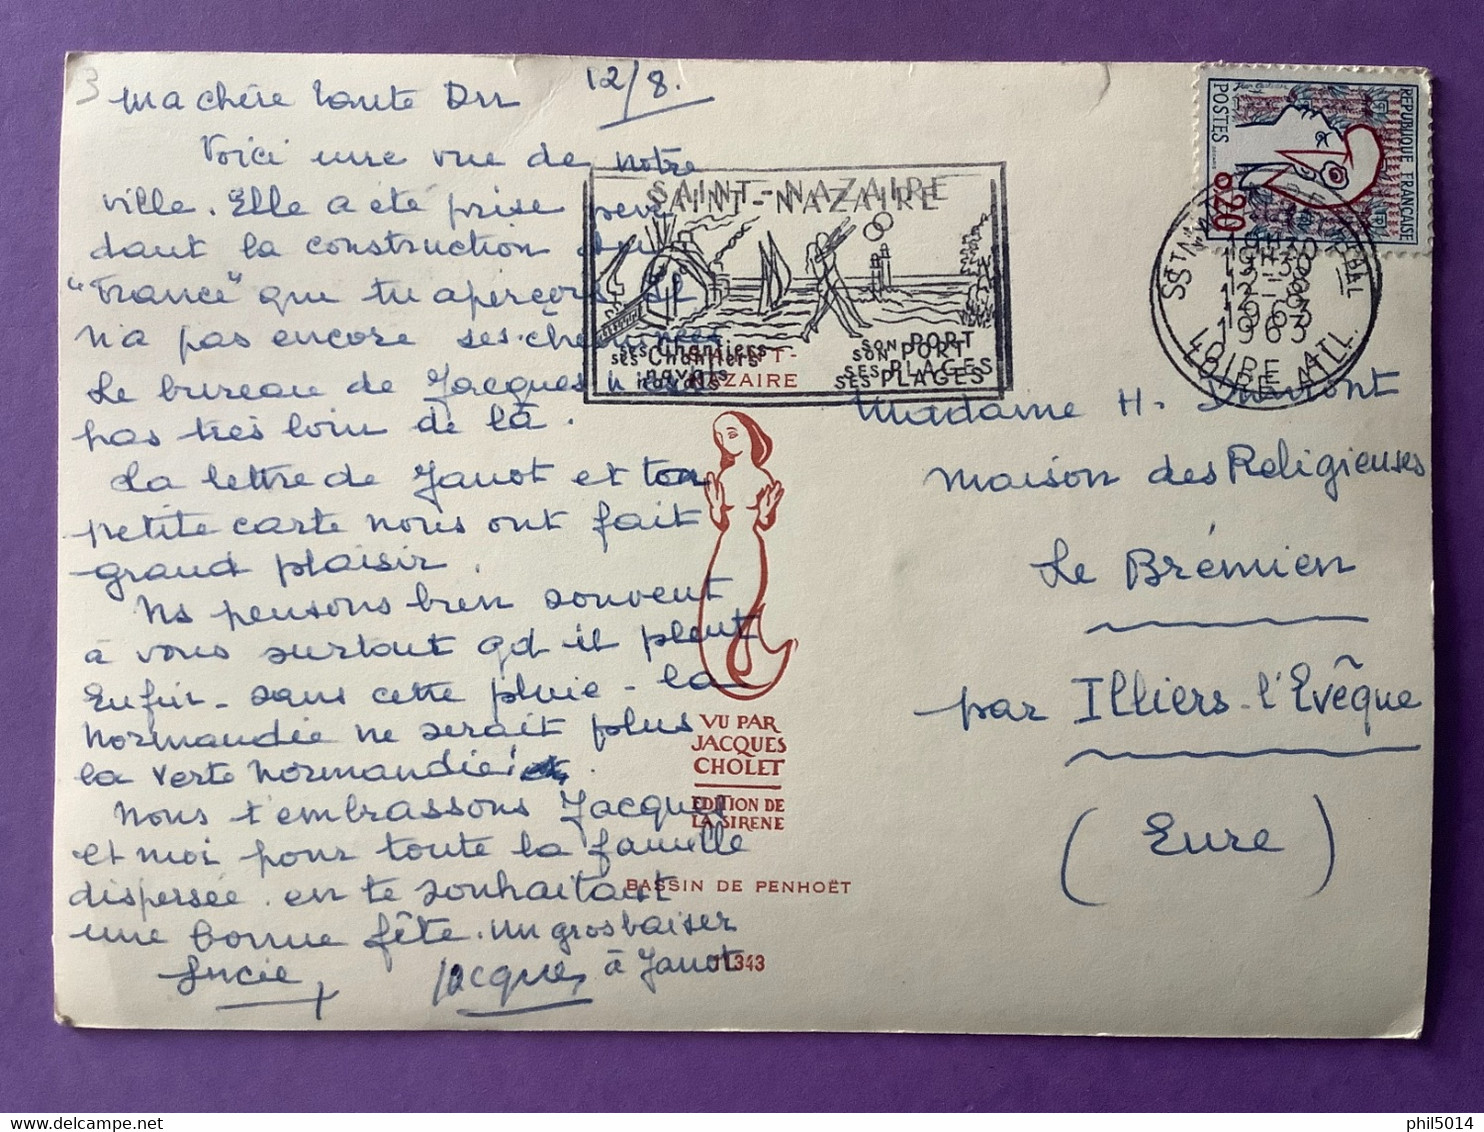 3
12/8.
Ma chère Tante
Voici une vue de notre
ville. Elle a été prise pen
dant la construction du
"France" que tu aperçois. Il
n'a pas encore ses cheminées
Le bureau de Jacques n'est
pas très loin de là.
La lettre de Janot et ta
petite carte nous ont fait
grand plaisir.
Ns pensons bien souvent
à vous surtout qd il pleut
Enfin - sans cette pluie - la
Normandie ne serait plus
la verte Normandie!
Nous t'embrassons Jacques
et moi pour toute la famille
dispersée en te souhaitant
une bonne fête. Un gros baiser
à Janot
Lucie
Jacques
SAINT-NAZAIRE
ses Chantiers
navals
son PORT
ses PLAGES
SAINT-
NAZAIRE
VU PAR
JACQUES
CHOLET
EDITION DE
LA SIRENE
BASSIN DE PENHOËT
11343
REPUBLIQUE FRANÇAISE
POSTES
0,20
ST NAZAIRE
19H30
12-8
1963
LOIRE ATL.
Madame H. Dumont
Maison des Religieuses
Le Brémien
par Illiers-l'Evêque
(Eure)
phil5014